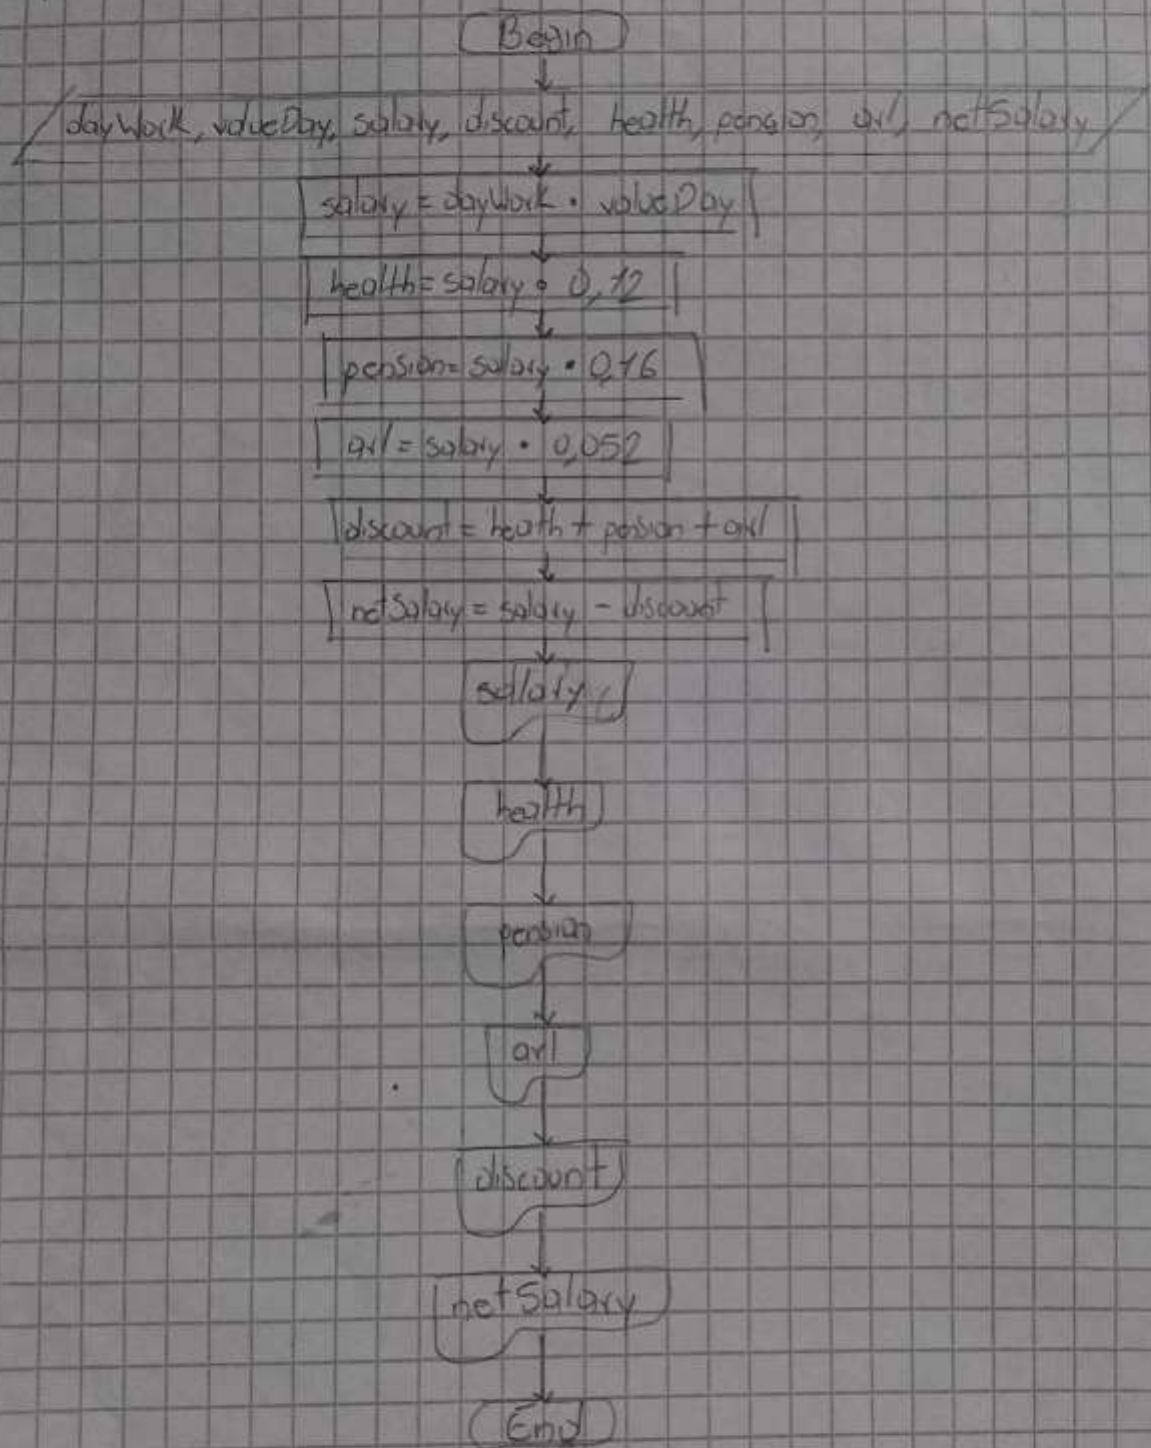 Begin
dayWork, valueDay, salary, discount, health, pension, arl, netSalary
salary = dayWork • valueDay
health = salary • 0,12
pension = salary • 0,16
arl = salary • 0,052
discount = heath + pension + arl
netSalary = salary - discount
sallary
health
pension
arl
discount
netSalary
End